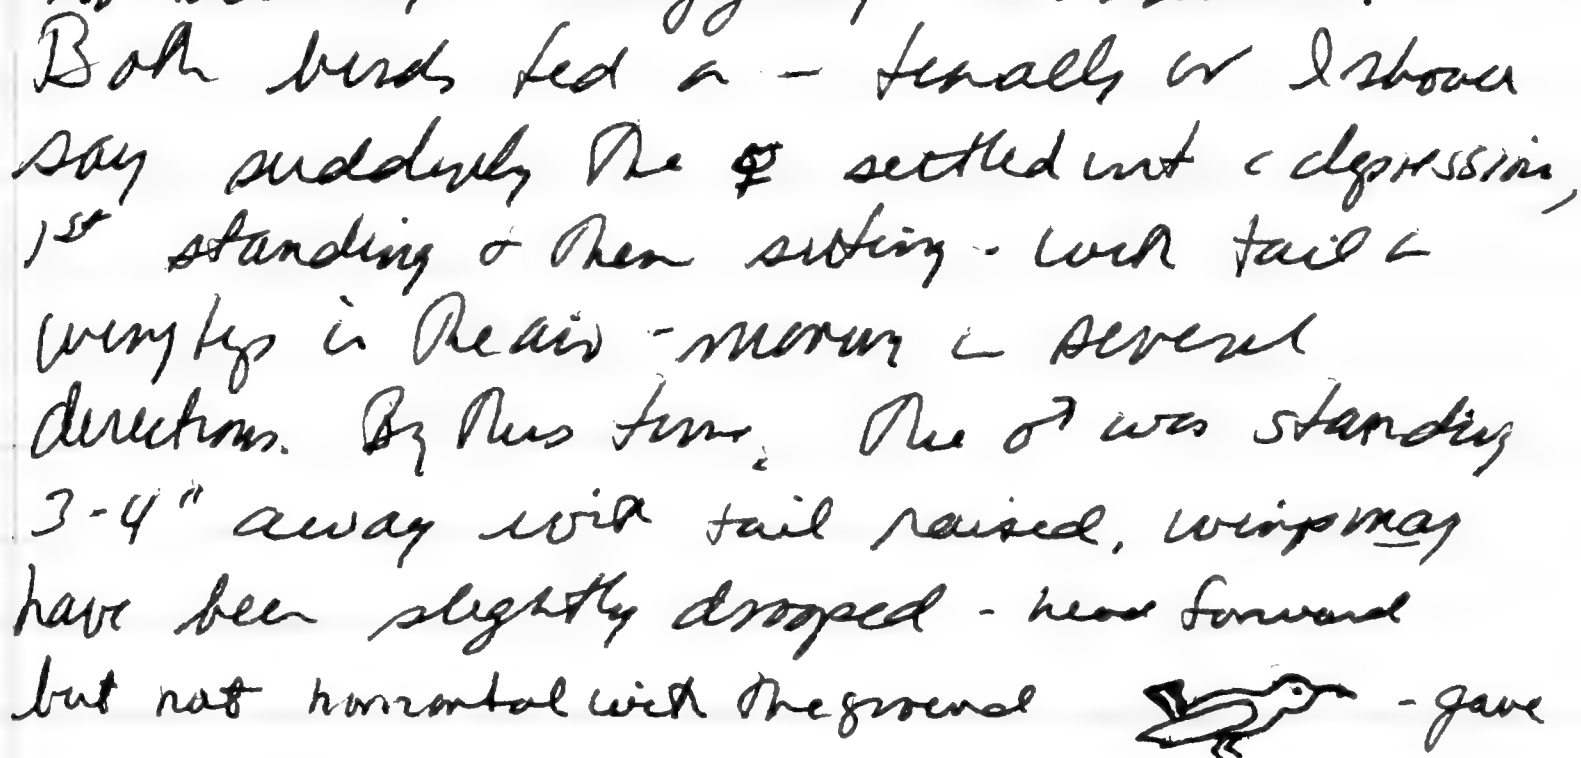 Both birds fed a - finally or I should
say suddenly the ♀ settled into a depression,
1st standing & then sitting - with tail &
wing tips in the air - moving in several
directions. By this time, the ♂ was standing
3-4" away with tail raised, wings may
have been slightly drooped - head forward
but not horizontal with the ground - gave